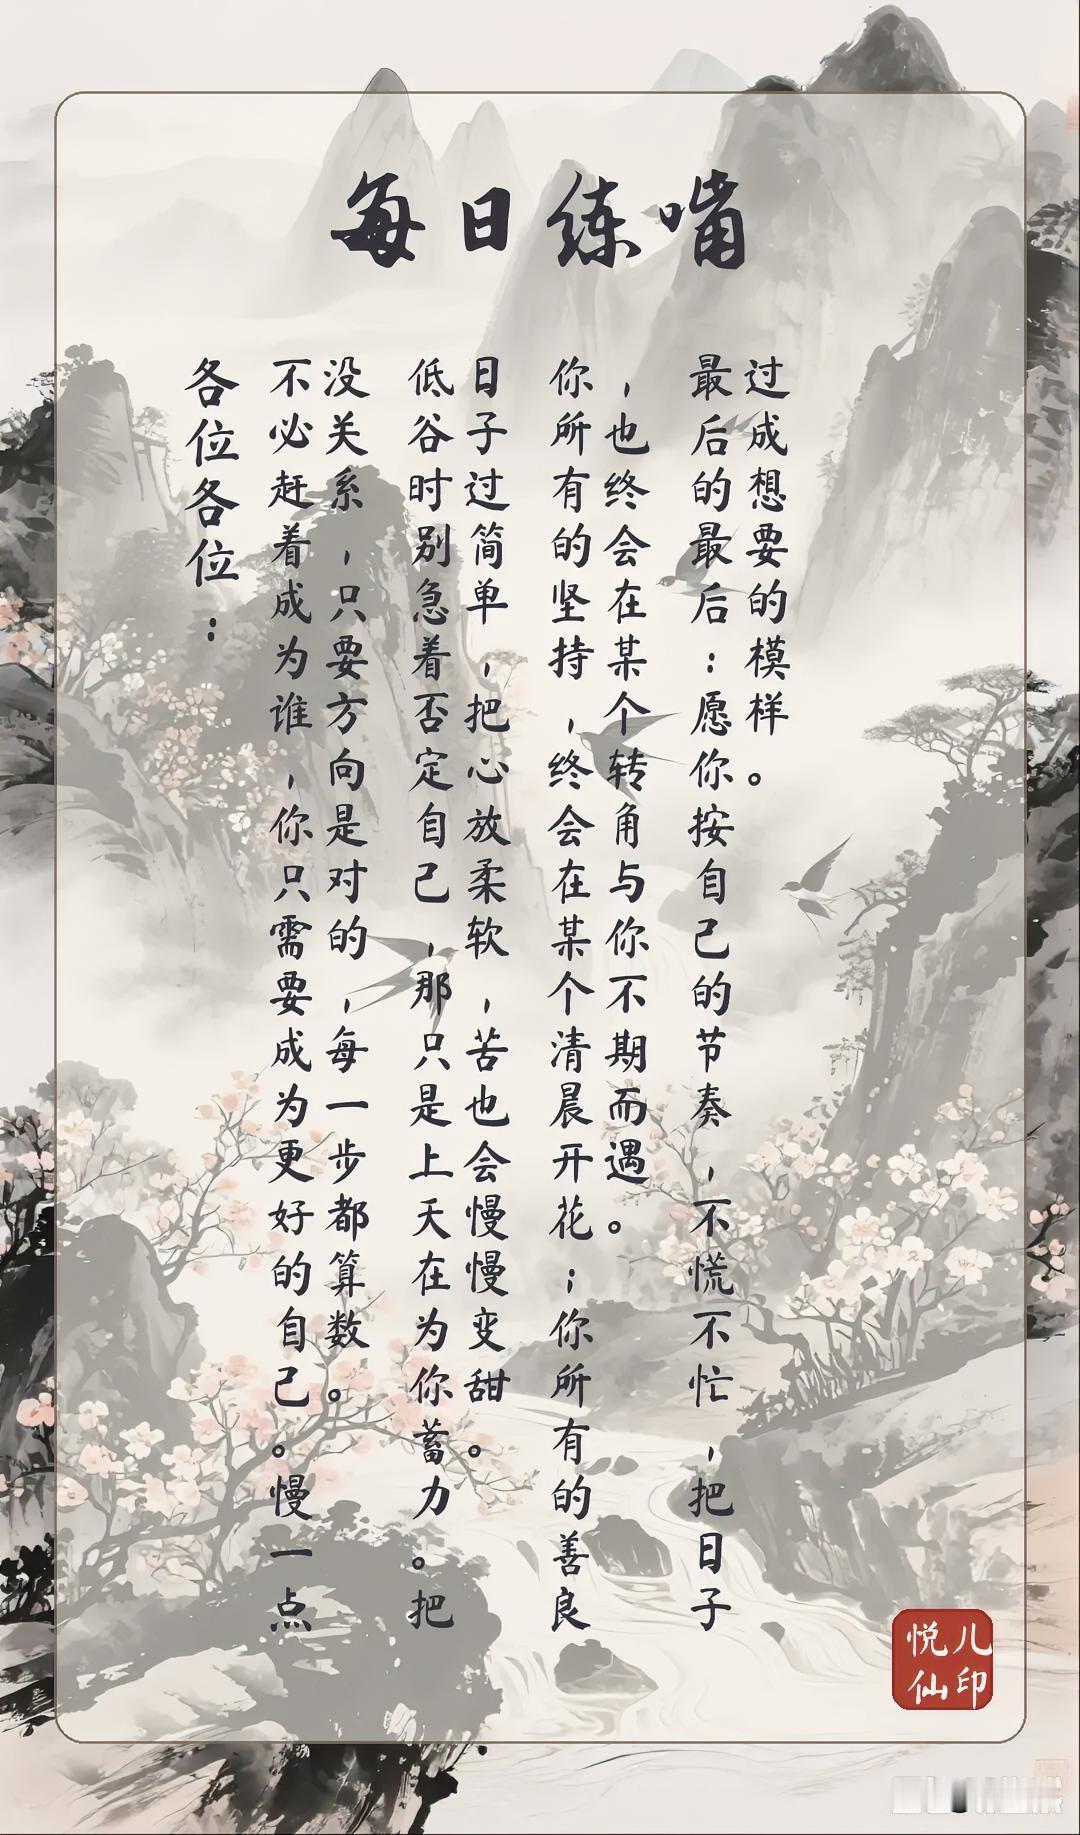 每日练啃
各位各位：
不必赶着成为谁，你只需要成为更好的自己。慢一点
没关系，只要方向是对的，每一步都算数。
低谷时别急着否定自己，那只是上天在为你蓄力。把
日子过简单，把心放柔软，苦也会慢慢变甜。
你所有的坚持，终会在某个清晨开花；你所有的善良
，也终会在某个转角与你不期而遇。
最后的最后：愿你按自己的节奏，不慌不忙，把日子
过成想要的模样。
悦儿
仙印